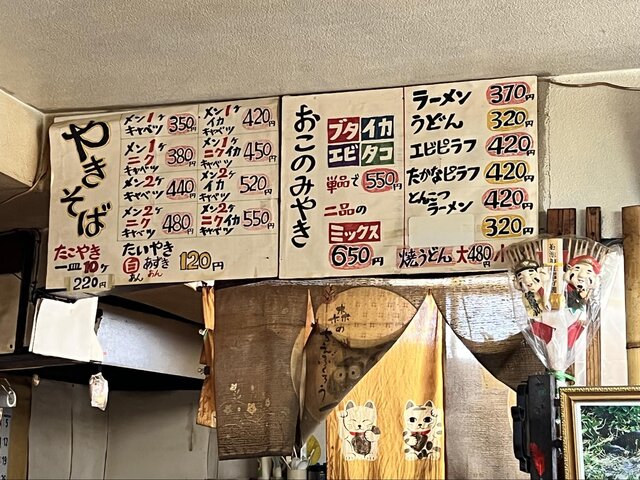 やきそば
メン1ヶ
キャベツ
350円
メン1ヶ
ニク
キャベツ
380円
メン2ヶ
キャベツ
440円
メン2ヶ
ニク
キャベツ
480円
メン1ヶ
イカ
キャベツ
420円
メン1ヶ
ニクイカ
キャベツ
450円
メン2ヶ
イカ
キャベツ
520円
メン2ヶ
ニクイカ
キャベツ
550円
たこやき
一皿10ヶ
220円
たいやき
白あん
あずきあん
120円
おこのみやき
ブタ イカ
エビ タコ
単品で 550円
二品の
ミックス
650円
ラーメン 370円
うどん 320円
エビピラフ 420円
たかなピラフ 420円
とんこつラーメン 420円
320円
焼うどん 大480円